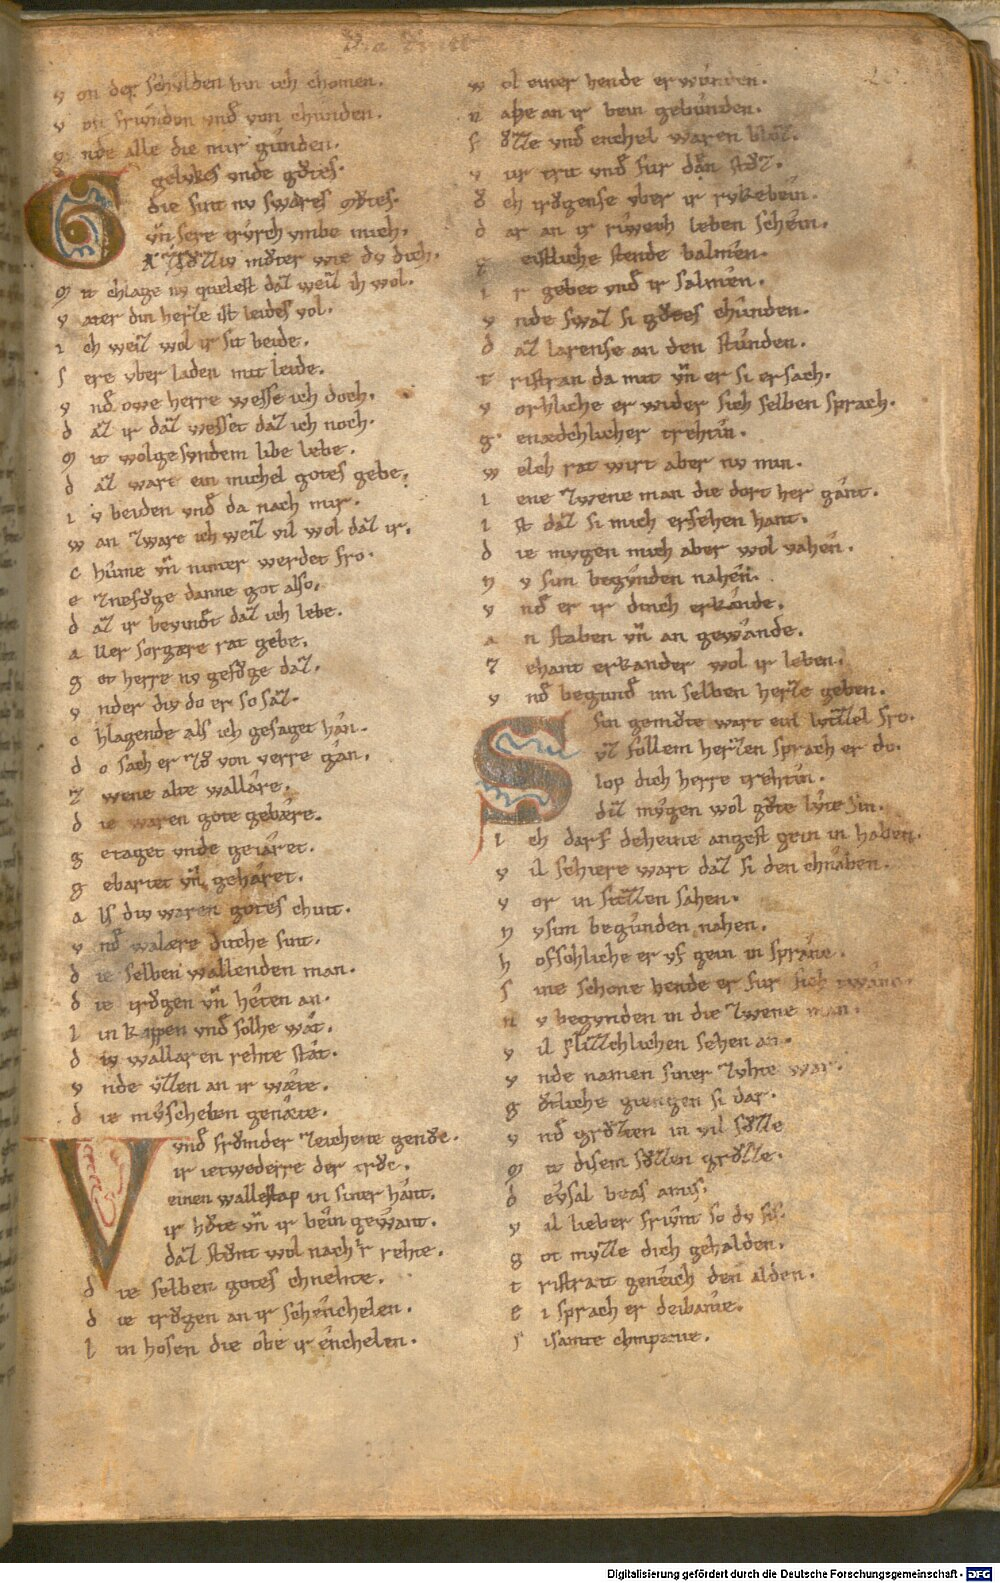 v on der schvlden bin ich chomen.
v on friunden vnd̄ von chunden.
v nde alle die mir gunden.
Gelvkes vnde gv̊tes.
die sint nv swæres mv̊tes.
vn̄ sere trvrch vmbe mich.
mv̊ter wie dv dich.
M it chlage nv quelest daz weiz ih wol.
v ater din herze ist leides vol.
i ch weiz wol ir sit beide.
s ere vber laden mit leide.
v nd̄ owe herre wesse ich doch.
d az ir daz wesset daz ich noch.
M it wolgesvndem libe lebe.
d az ware ein michel gotes gebe.
i v beiden vnd̄ da nach mir.
w an zware ich weiz vil wol daz ir.
c hûme vn̄ nimer werdet fro.
e znefv̊ge danne got also.
d az ir bevindt daz ich lebe.
a ller sorgære rat gebe.
g ot herre nv gefv̊ge daz.
v nder div do er so saz.
c hlagende als ich gesaget hân.
d o sach er zv̊ von verre gân.
z wene alte wallâre.
d ie waren gote gebære.
g etaget vnde geiâret.
g ebartet vn̄ gehâret.
a ls div waren gotes chint.
v nd̄ walære dicche sint.
d ie selben wallenden man.
d ie trv̊gen vn̄ hêten an.
l in kappen vnd̄ solhe wât.
d iv wallaren rehte stât.
v nde vzzen an ir wæte.
d ie mv̂schelen genæte.
Vnd̄ frômder zeichene genv̊c.
ir ietwederre der trv̊c.
einen wallestap in siner hânt.
ir hv̊te vn̄ ir bêin gewant.
daz stv̊nt wol nach ir rehte.
d ie selben gotes chnehte.
d ie trv̊gen an ir schênchelen.
l in hosen die obe ir ênchelen.
w ol einer hende erwunden.
n ahe an ir bein gebunden.
f v̊zze vnd̄ enchel waren bloz.
v ur trit vnd̄ fur den stoz.
o vch trv̊gense vber ir rvkebein.
d ar an ir riwech leben schein.
g eistliche stende balmen.
i r gebet vnd̄ ir salmen.
v nde swaz si gv̊tes chûnden.
d az lasense an den stûnden.
t ristran da mit vn̄ er si ersach.
v orhliche er wider sich selben sprach.
g enædchlicher trehtin.
w elch rat wirt aber nv min.
i ene zwene man die dort her gânt.
i st daz si mich ersehen hant.
d ie mvgen mich aber wol vahen.
N v sim begvnden nahen.
v nd̄ er ir dinch erkânde.
a n staben vn̄ an gewânde.
z ehant erkander wol ir leben.
v nd̄ begund̄ im selben herze geben.
Sin gemv̊te wart ein lvzzel fro.
vz follem herzen sprach er do.
lop dich herre trehtin.
diz mvgen wol gv̊te lvte sin.
i ch darf deheine angest gein in haben.
v il schiere wart daz si den chnaben.
v or in sitzzen sahen.
N v sim begunden nahen.
h ofschliche er vf gein in spranc.
s ine schone hende er fur sich twanc.
n v begvnden in die zwene man.
v il flizzchlichen sehen an.
v nde namen siner zvhte war.
g v̊tliche giengen si dar.
v nd̄ grv̊zten in vil sv̊zze
M it disem sv̊zzen grv̊zze.
d eûsal beas amis.
v il lieber friunt so dv sis.
g ot mvzze dich gehalden.
t ristrant geneich den alden.
e i sprach er debanie.
s isainte chnpanie.
Digitalisierung gefördert durch die Deutsche Forschungsgemeinschaft - DFG